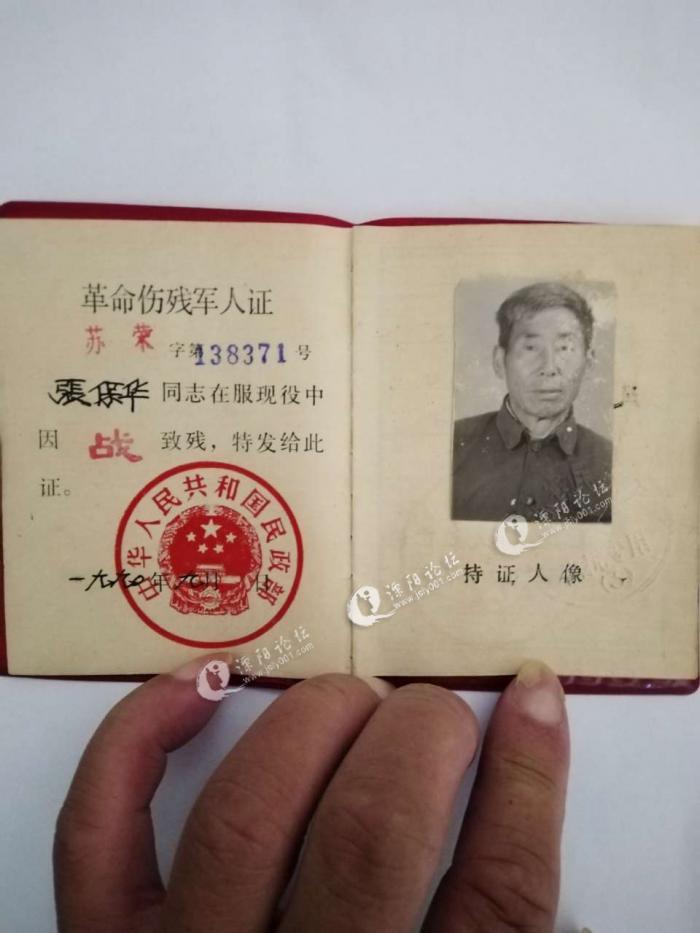 革命伤残军人证
苏荣 字第138371号
張保华 同志在服现役中
因 战 致残，特发给此
证。
中华人民共和国民政部
一九九〇年九月 日
持证人像
溧阳论坛
www.jsly001.com
溧阳论坛
www.jsly001.com
溧阳论坛
www.jsly001.com